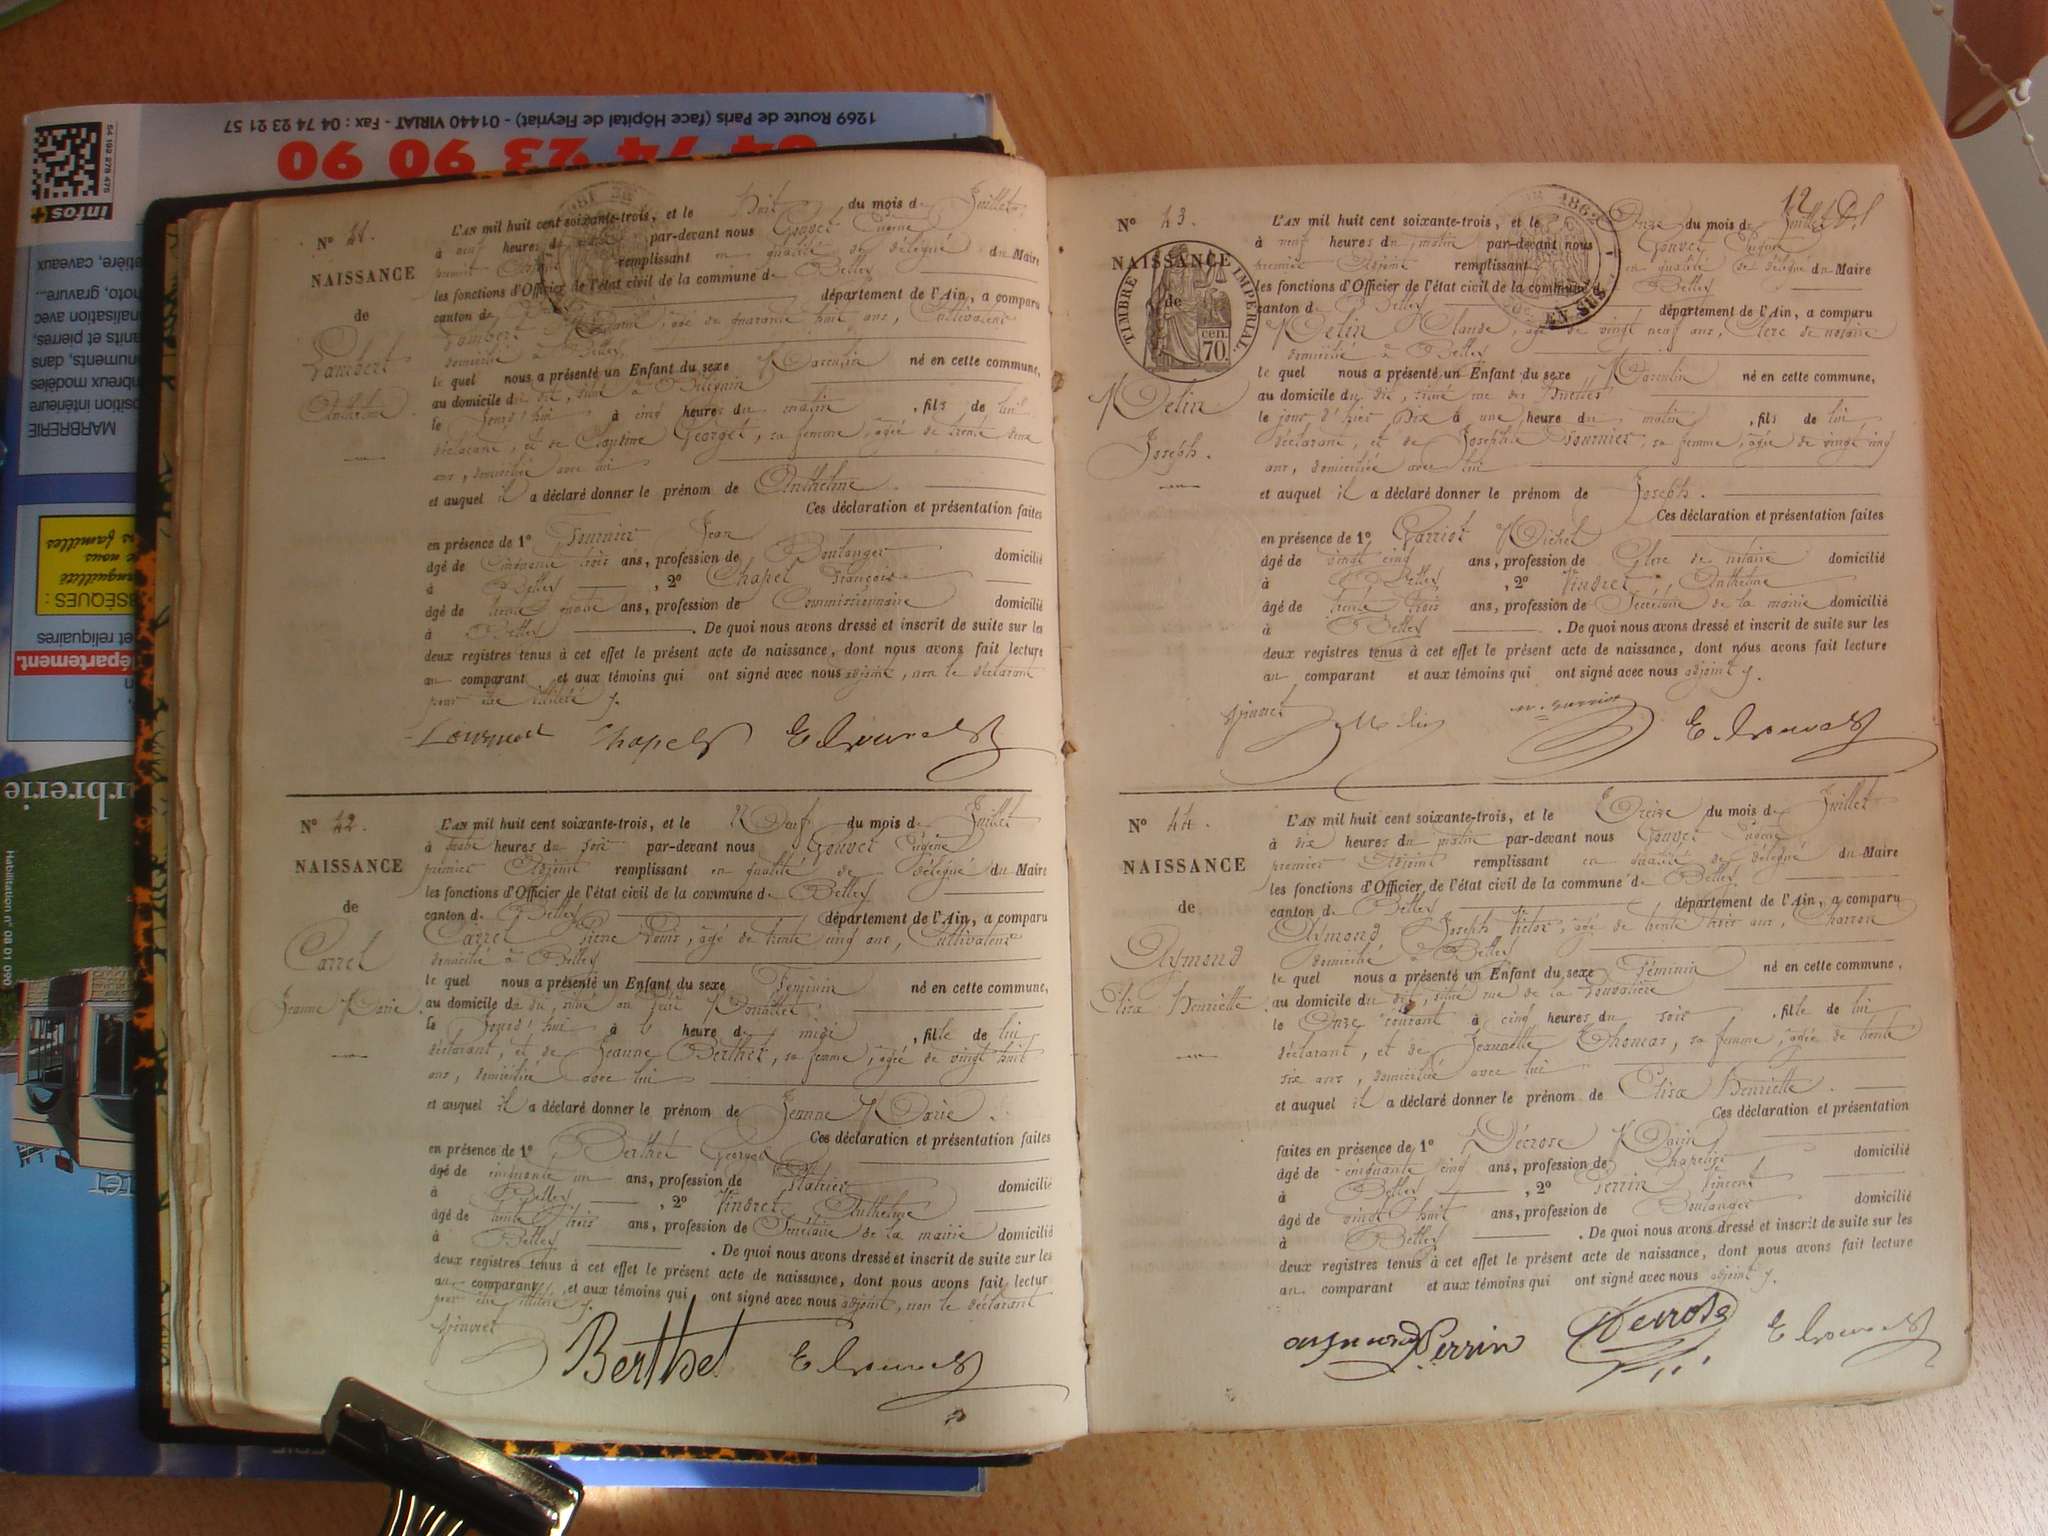 1269 Route de Paris (face Hôpital de Fleyriat) - 01440 VIRIAT - Fax : 04 74 23 21 57
04 74 23 90 90
infos+
MARBRERIE
département.
Habilitation n° 08 01 090
N° 41.
NAISSANCE
de
Lambert
Anthelme
L'AN mil huit cent soixante-trois, et le huit du mois de Juillet
à neuf heures du par-devant nous Gouvet Eugène
premier Adjoint remplissant en qualité de délégué du Maire
les fonctions d'Officier de l'état civil de la commune de Belley
canton de département de l'Ain, a comparu
Lambert âgé de quarante huit ans, Cultivateur
domicilié à Belley
le quel nous a présenté un Enfant du sexe Masculin né en cette commune,
au domicile du dit, situé à
le jourd'hui à cinq heures du matin , fils de lui
déclarant, et de Georget, sa femme, âgée de trente deux
ans, domiciliée avec lui
et auquel il a déclaré donner le prénom de Anthelme
Ces déclaration et présentation faites
en présence de 1° Fournier Jean
âgé de Cinquante trois ans, profession de Boulanger domicilié
à Belley , 2° Chapel François
âgé de trente quatre ans, profession de Commissionnaire domicilié
à Belley . De quoi nous avons dressé et inscrit de suite sur les
deux registres tenus à cet effet le présent acte de naissance, dont nous avons fait lecture
au comparant et aux témoins qui ont signé avec nous adjoint, non le déclarant
pour être illitéré
Chapel
N° 42.
NAISSANCE
de
Carrel
Jeanne Marie
L'AN mil huit cent soixante-trois, et le Neuf du mois de Juillet
à heures du soir par-devant nous Gouvet Eugène
premier Adjoint remplissant en qualité de délégué du Maire
les fonctions d'Officier de l'état civil de la commune de Belley
canton de Belley département de l'Ain, a comparu
Carrel Pierre Louis, âgé de trente cinq ans, Cultivateur
domicilié à Belley
le quel nous a présenté un Enfant du sexe Féminin né en cette commune,
au domicile du dit, situé au
le jourd'hui à heure de midi , fille de lui
déclarant, et de Jeanne Berthet, sa femme, âgée de vingt huit
ans, domiciliée avec lui
et auquel il a déclaré donner le prénom de Jeanne Marie.
Ces déclaration et présentation faites
en présence de 1° Berthet Georges
âgé de cinquante un ans, profession de Platrier domicilié
à Belley , 2° Vindret Anthelme
âgé de trente trois ans, profession de Secrétaire de la mairie domicilié
à Belley . De quoi nous avons dressé et inscrit de suite sur les
deux registres tenus à cet effet le présent acte de naissance, dont nous avons fait lectur
au comparant et aux témoins qui ont signé avec nous adjoint, non le déclarant
pour être illitéré
Vindret
Berthet
12
N° 43.
NAISSANCE
de
TIMBRE IMPERIAL.
70. cen.
Melin
Joseph.
L'AN mil huit cent soixante-trois, et le Onze du mois de Juillet
à neuf heures du matin par-devant nous Gouvet Eugène
premier Adjoint remplissant en qualité de délégué du Maire
les fonctions d'Officier de l'état civil de la commune de Belley
canton de Belley département de l'Ain, a comparu
Melin Claude, âgé de vingt neuf ans, Clerc de notaire
domicilié à Belley
le quel nous a présenté un Enfant du sexe Masculin né en cette commune,
au domicile du dit, situé rue des
le jour d'hier Dix à une heure du matin , fils de lui
déclarant, et de Josephte Fournier, sa femme, âgée de vingt cinq
ans, domiciliée avec lui
et auquel il a déclaré donner le prénom de Joseph.
Ces déclaration et présentation faites
en présence de 1° Garriot Michel
âgé de vingt cinq ans, profession de Clerc de notaire domicilié
à Belley , 2° Vindret Anthelme
âgé de trente trois ans, profession de Secrétaire de la mairie domicilié
à Belley . De quoi nous avons dressé et inscrit de suite sur les
deux registres tenus à cet effet le présent acte de naissance, dont nous avons fait lecture
au comparant et aux témoins qui ont signé avec nous adjoint
Vindret
N° 44.
NAISSANCE
de
Aymond
Elisa Henriette.
L'AN mil huit cent soixante-trois, et le Treize du mois de Juillet
à dix heures du matin par-devant nous Gouvet Eugène
premier Adjoint remplissant en qualité de délégué du Maire
les fonctions d'Officier de l'état civil de la commune de Belley
canton de Belley département de l'Ain, a comparu
Aymond Joseph Victor, âgé de trente trois ans, Charron
domicilié à Belley
le quel nous a présenté un Enfant du sexe Féminin né en cette commune,
au domicile du dit, situé rue de la
le Onze courant à cinq heures du soir , fille de lui
déclarant, et de Jeannette Thomas, sa femme, âgée de trente
six ans, domiciliée avec lui
et auquel il a déclaré donner le prénom de Elisa Henriette.
Ces déclaration et présentation
faites en présence de 1° Décrose Marin
âgé de cinquante cinq ans, profession de Chapelier domicilié
à Belley , 2° Perrin Vincent
âgé de vingt huit ans, profession de Boulanger domicilié
à Belley . De quoi nous avons dressé et inscrit de suite sur les
deux registres tenus à cet effet le présent acte de naissance, dont nous avons fait lecture
au comparant et aux témoins qui ont signé avec nous adjoint
aymond Perrin Decrose